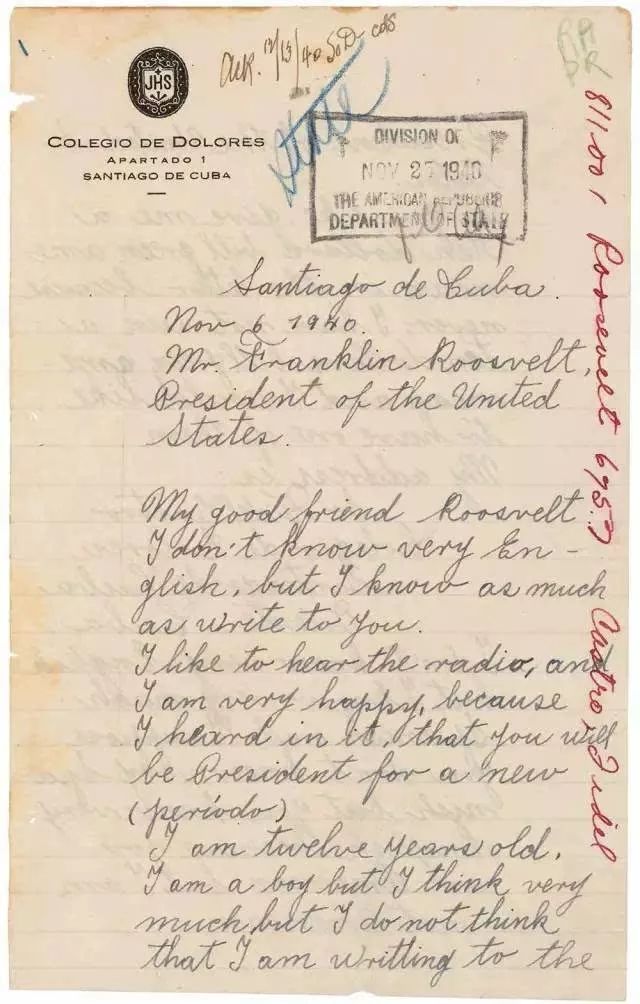 JHS
COLEGIO DE DOLORES
APARTADO 1
SANTIAGO DE CUBA
Ack. 12/13/40 SoD- cds
State
DIVISION OF
NOV 27 1940
THE AMERICAN REPUBLICS
DEPARTMENT OF STATE
Santiago de Cuba.
Nov 6 1940.
Mr. Franklin Roosvelt,
President of the United
States.
My good friend Roosvelt
I don't know very En-
glish, but I know as much
as write to you.
I like to hear the radio, and
I am very happy, because
I heard in it, that you will
be President for a new
(período)
I am twelve years old.
I am a boy but I think very
much but I do not think
that I am writting to the
811.001 Roosevelt Castro, Fidel